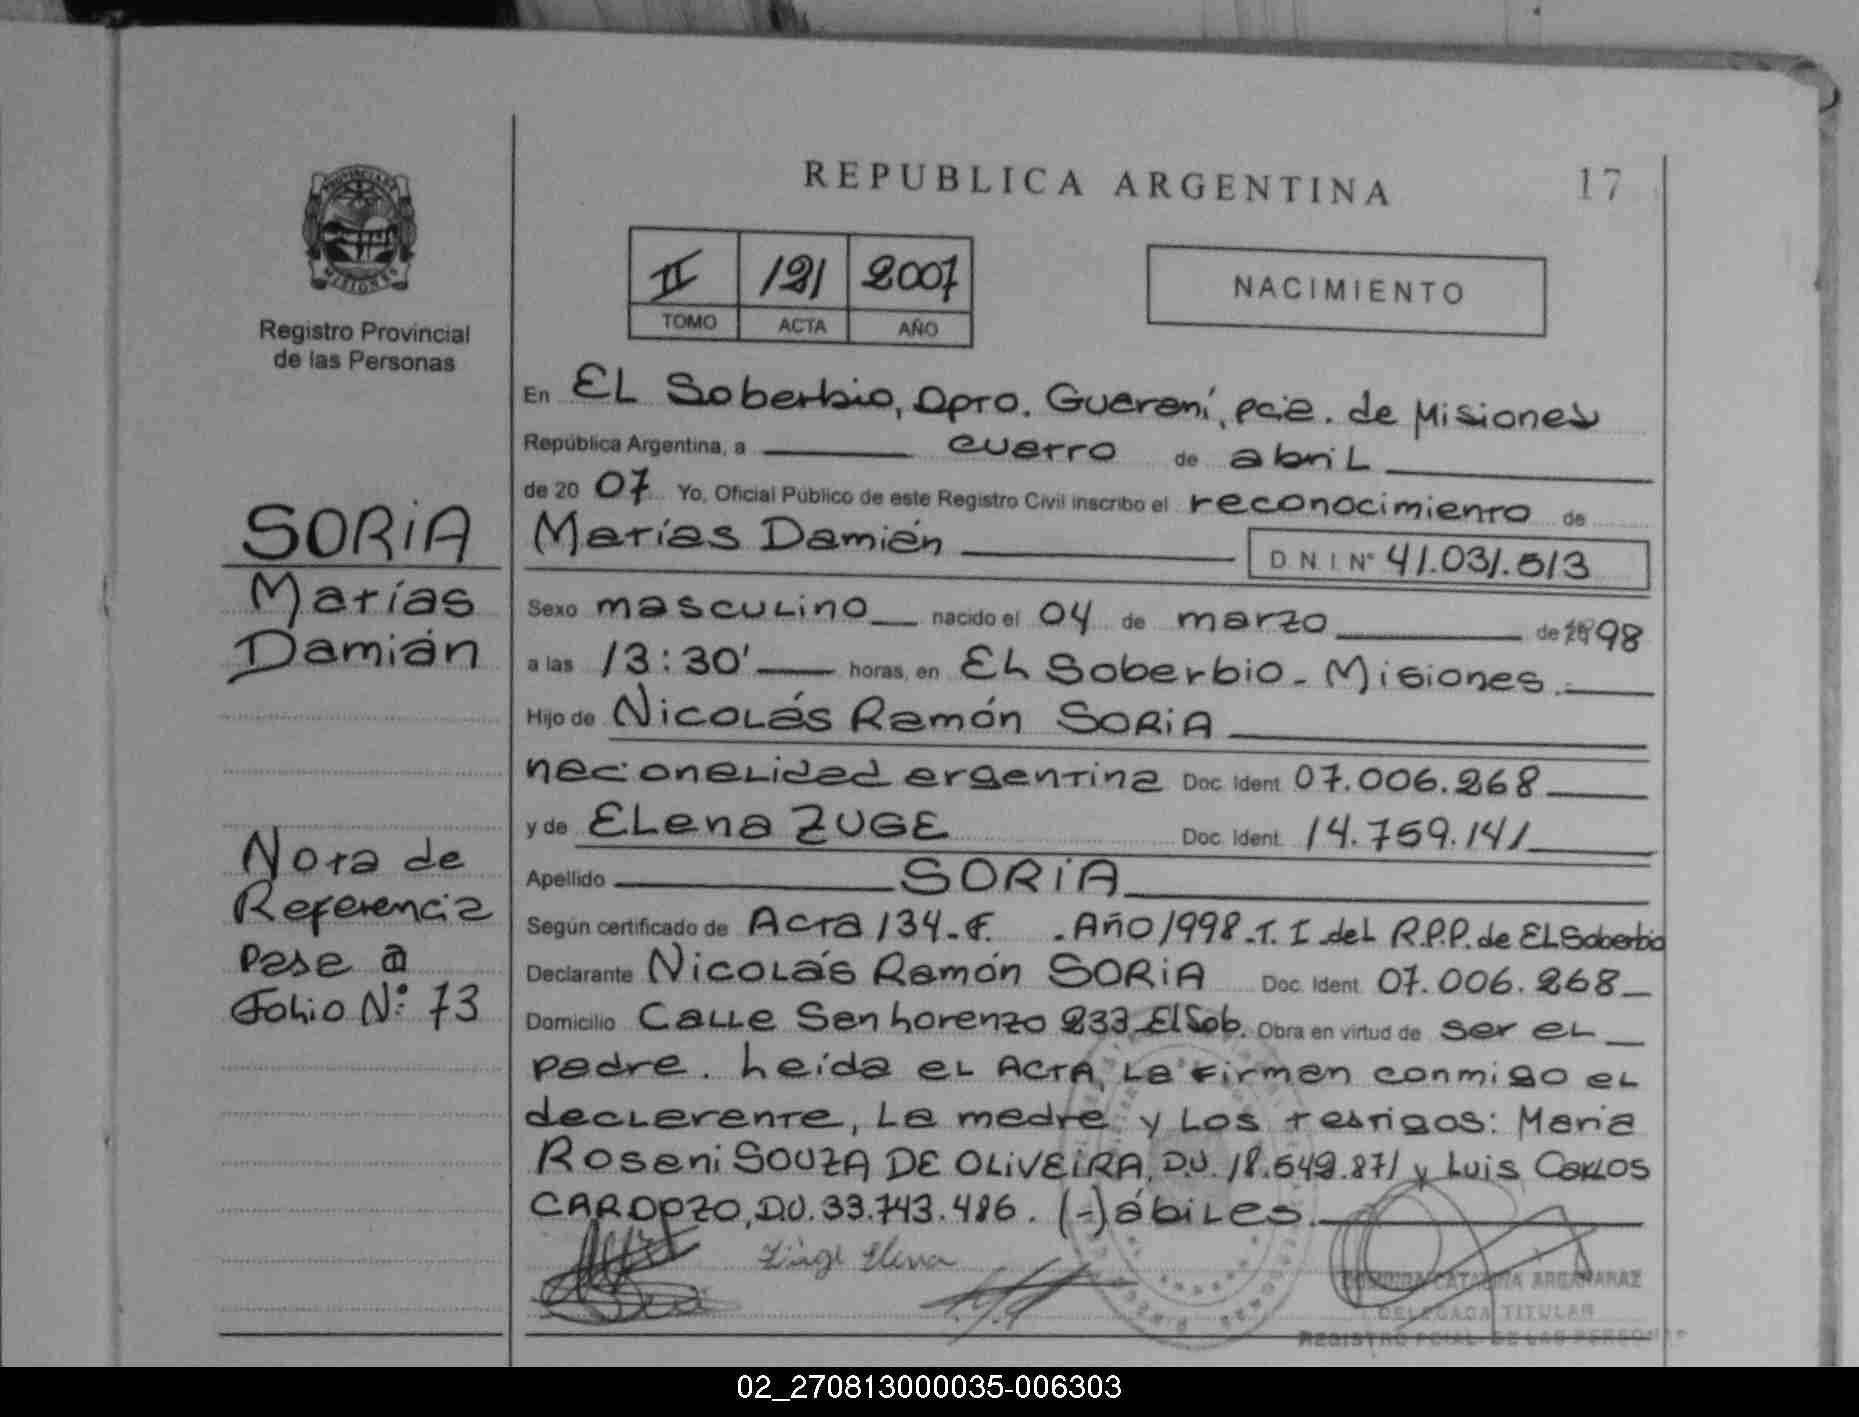 REPUBLICA ARGENTINA
17
PROVINCIA DE
MISIONES
Registro Provincial
de las Personas
II 121 2007
TOMO ACTA AÑO
NACIMIENTO
En El Soberbio, Dpto. Guaraní, pcia. de Misiones
República Argentina, a cuatro de abril
de 20 07 Yo, Oficial Público de este Registro Civil inscribo el reconocimiento de
Matías Damián D.N.I. Nº 41.031.513
Sexo masculino nacido el 04 de marzo de 1998
a las 13:30' horas, en El Soberbio - Misiones.
Hijo de Nicolás Ramón SORIA
nacionalidad argentina Doc. Ident. 07.006.268
y de Elena ZUGE Doc. Ident. 14.759.141
Apellido SORIA
Según certificado de Acta 134-F. - Año 1998-T. I - del R.P.P. de El Soberbio
Declarante Nicolás Ramón SORIA Doc. Ident. 07.006.268
Domicilio Calle San Lorenzo 233 El Sob. Obra en virtud de ser el
padre. Leída el ACTA, la firman conmigo el
declarante, la madre y los testigos: Maria
Roseni SOUZA DE OLIVEIRA, D.U. 18.549.871 y Luis Carlos
CARDOZO, D.U. 33.743.486. (-) ábiles.
SORIA
Matías
Damián
Nota de
Referencia
Pase a
Folio Nº: 73
Züge Elena
CATALINA ARGAÑARAZ
DELEGADA TITULAR
REGISTRO PCIAL. DE LAS PERSONAS
02_270813000035-006303